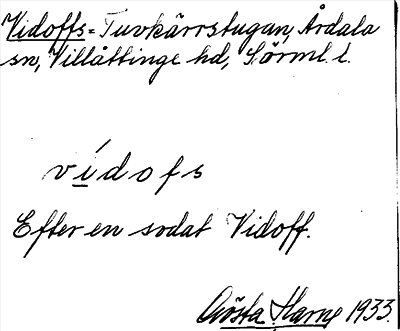 Vidoffs=Tuvkärrstugan, Årdala
sn, Villåttinge hd, Sörml. l.
vídofs
Efter en sodat Vidoff.
Gösta Harne 1933.